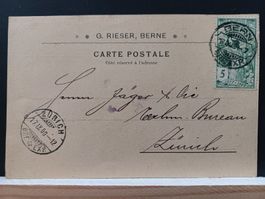 G. RIESER, BERNE
CARTE POSTALE
Côté réservé à l'adresse
BERN
5
Herren Jäger & Cie
Bureau
Zürich
ZÜRICH